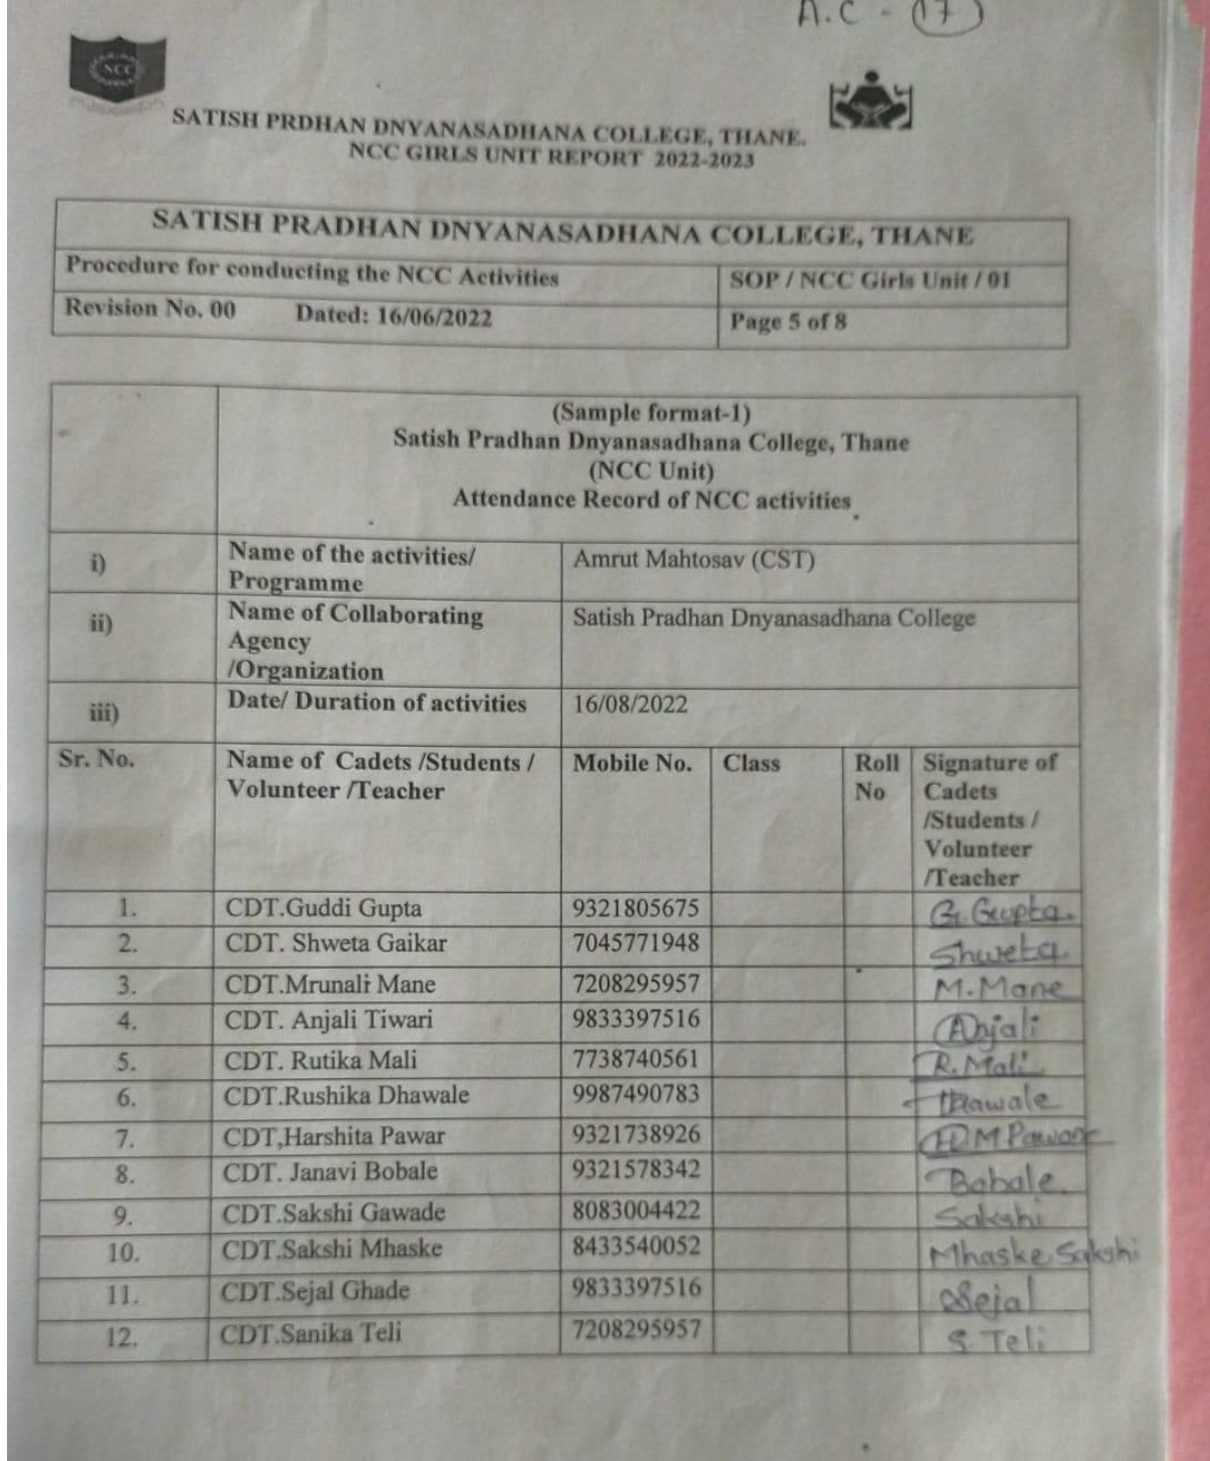 A.C - (17)
NCC
SATISH PRDHAN DNYANASADHANA COLLEGE, THANE.
NCC GIRLS UNIT REPORT 2022-2023
SATISH PRADHAN DNYANASADHANA COLLEGE, THANE
Procedure for conducting the NCC Activities SOP / NCC Girls Unit / 01
Revision No. 00 Dated: 16/06/2022 Page 5 of 8
(Sample format-1)
Satish Pradhan Dnyanasadhana College, Thane
(NCC Unit)
Attendance Record of NCC activities
i) Name of the activities/ Amrut Mahtosav (CST)
Programme
ii) Name of Collaborating Satish Pradhan Dnyanasadhana College
Agency
/Organization
iii) Date/ Duration of activities 16/08/2022
Sr. No. Name of Cadets /Students / Mobile No. Class Roll Signature of
Volunteer /Teacher No Cadets
/Students /
Volunteer
/Teacher
1. CDT.Guddi Gupta 9321805675 G. Gupta.
2. CDT. Shweta Gaikar 7045771948 Shweta
3. CDT.Mrunali Mane 7208295957 M.Mane
4. CDT. Anjali Tiwari 9833397516 Anjali
5. CDT. Rutika Mali 7738740561 R.Mali
6. CDT.Rushika Dhawale 9987490783
7. CDT,Harshita Pawar 9321738926 H.M.Pawar
8. CDT. Janavi Bobale 9321578342 Bobale
9. CDT.Sakshi Gawade 8083004422 Sakshi
10. CDT.Sakshi Mhaske 8433540052 Mhaske Sakshi
11. CDT.Sejal Ghade 9833397516 Sejal
12. CDT.Sanika Teli 7208295957 S. Teli